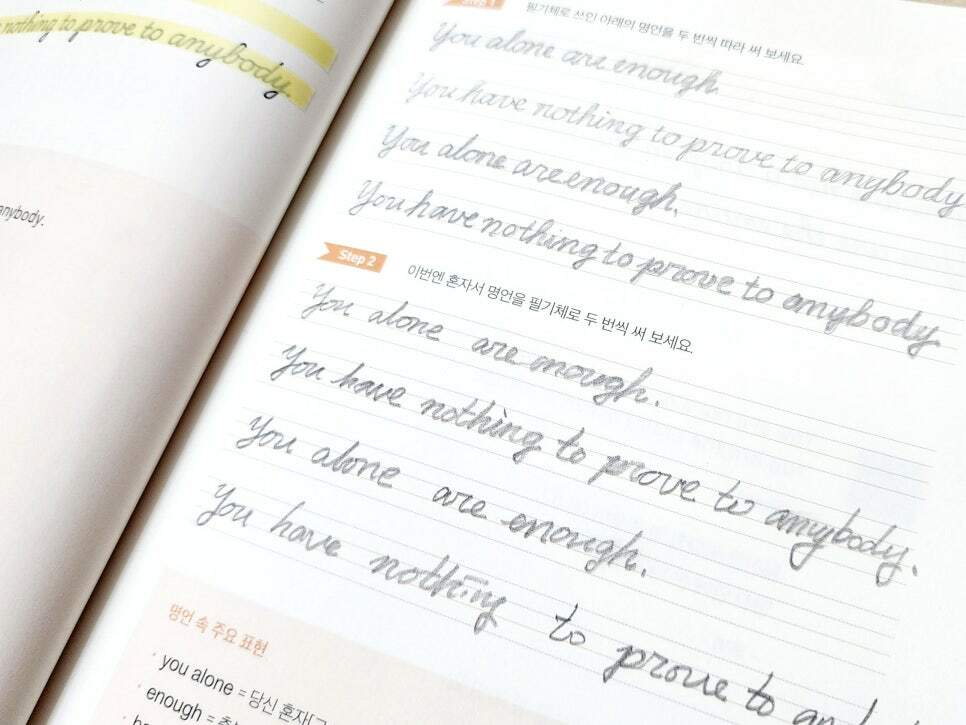 nothing to prove to anybody.
anybody.
Step 1
필기체로 쓰인 아래의 명언을 두 번씩 따라 써 보세요.
You alone are enough.
You have nothing to prove to anybody
You alone are enough.
You have nothing to prove to anybody
Step 2
이번엔 혼자서 명언을 필기체로 두 번씩 써 보세요.
You alone are enough.
You have nothing to prove to anybody.
You alone are enough.
You have nothing to prove to
명언 속 주요 표현
· you alone = 당신 혼자
· enough =